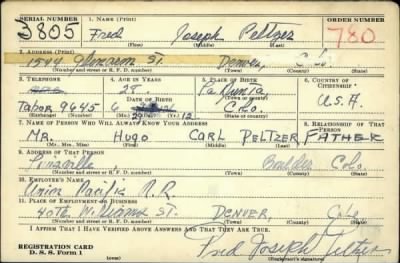 SERIAL NUMBER 1. NAME (Print) ORDER NUMBER
3805 Fred Joseph Peltzer 780
(First) (Middle) (Last)
2. ADDRESS (Print)
1544 St. Denver, Colo.
(Number and street or R. F. D. number) (Town) (County) (State)
3. TELEPHONE 4. AGE IN YEARS 5. PLACE OF BIRTH 6. COUNTRY OF CITIZENSHIP
28. La Junta,
DATE OF BIRTH
Tabor 9645 6 29 12 Colo. U.S.A.
(Exchange) (Number) (Mo.) (Day) (Yr.) (State or country)
7. NAME OF PERSON WHO WILL ALWAYS KNOW YOUR ADDRESS 8. RELATIONSHIP OF THAT PERSON
Mr. Hugo Carl Peltzer, FATHER
(Mr., Mrs., Miss) (First) (Middle) (Last)
9. ADDRESS OF THAT PERSON
Pinecliffe, Boulder Colo.
(Number and street or R. F. D. number) (Town) (County) (State)
10. EMPLOYER'S NAME
Union Pacific R.R.
11. PLACE OF EMPLOYMENT OR BUSINESS
40th Williams ST. DENVER, Colo.
(Number and street or R. F. D. number) (Town) (County) (State)
I AFFIRM THAT I HAVE VERIFIED ABOVE ANSWERS AND THAT THEY ARE TRUE.
REGISTRATION CARD
D. S. S. Form 1 Fred Joseph Peltzer
(Registrant's signature)